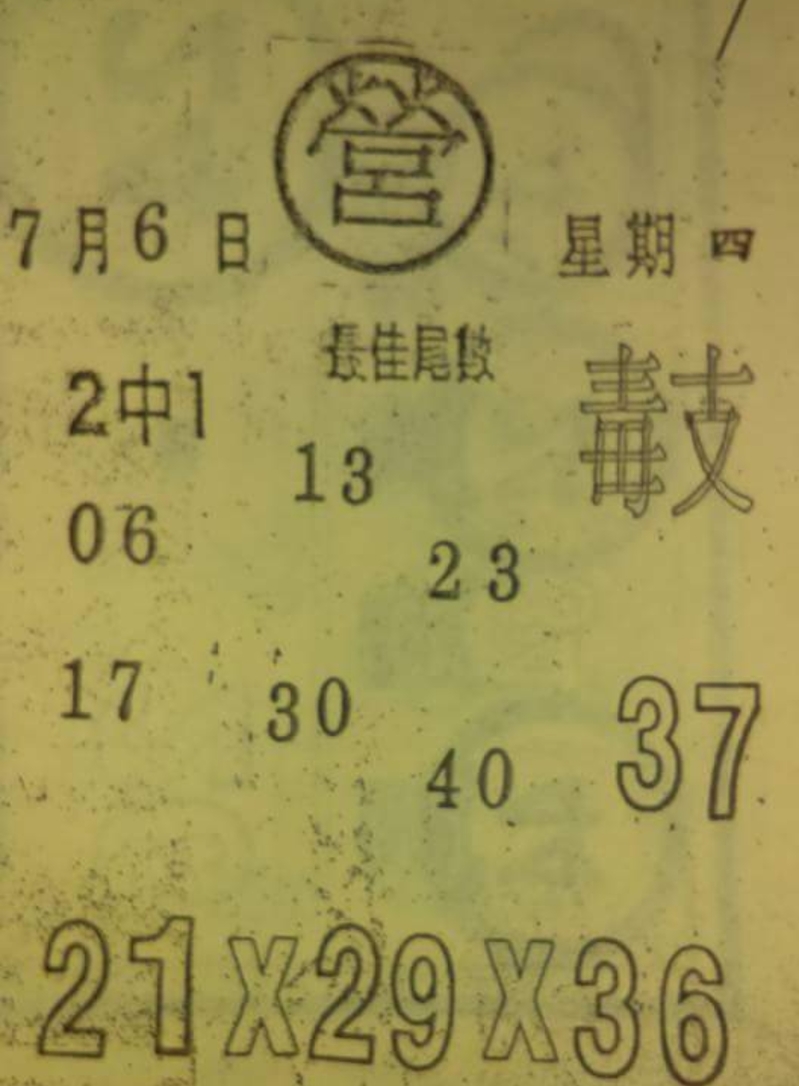 營
7月6日 星期四
2中1 最佳尾數 毒支
13
06
23
17 30 37
40
21X29X36